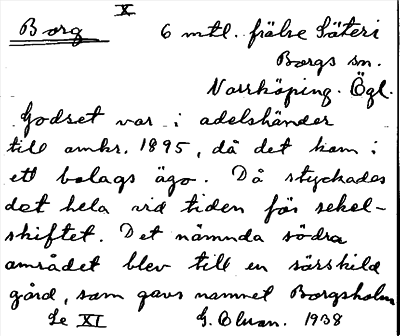 X
Borg 6 mtl. frälse Säteri
Borgs sn.
Norrköping. Ögl.
Godset var i adelshänder
till omkr. 1895, då det kom i
ett bolags ägo. Då styckades
det hela vid tiden för sekel-
skiftet. Det nämnda södra
området blev till en särskild
gård, som gavs namnet Borgsholm
Se XI G. Olman. 1938